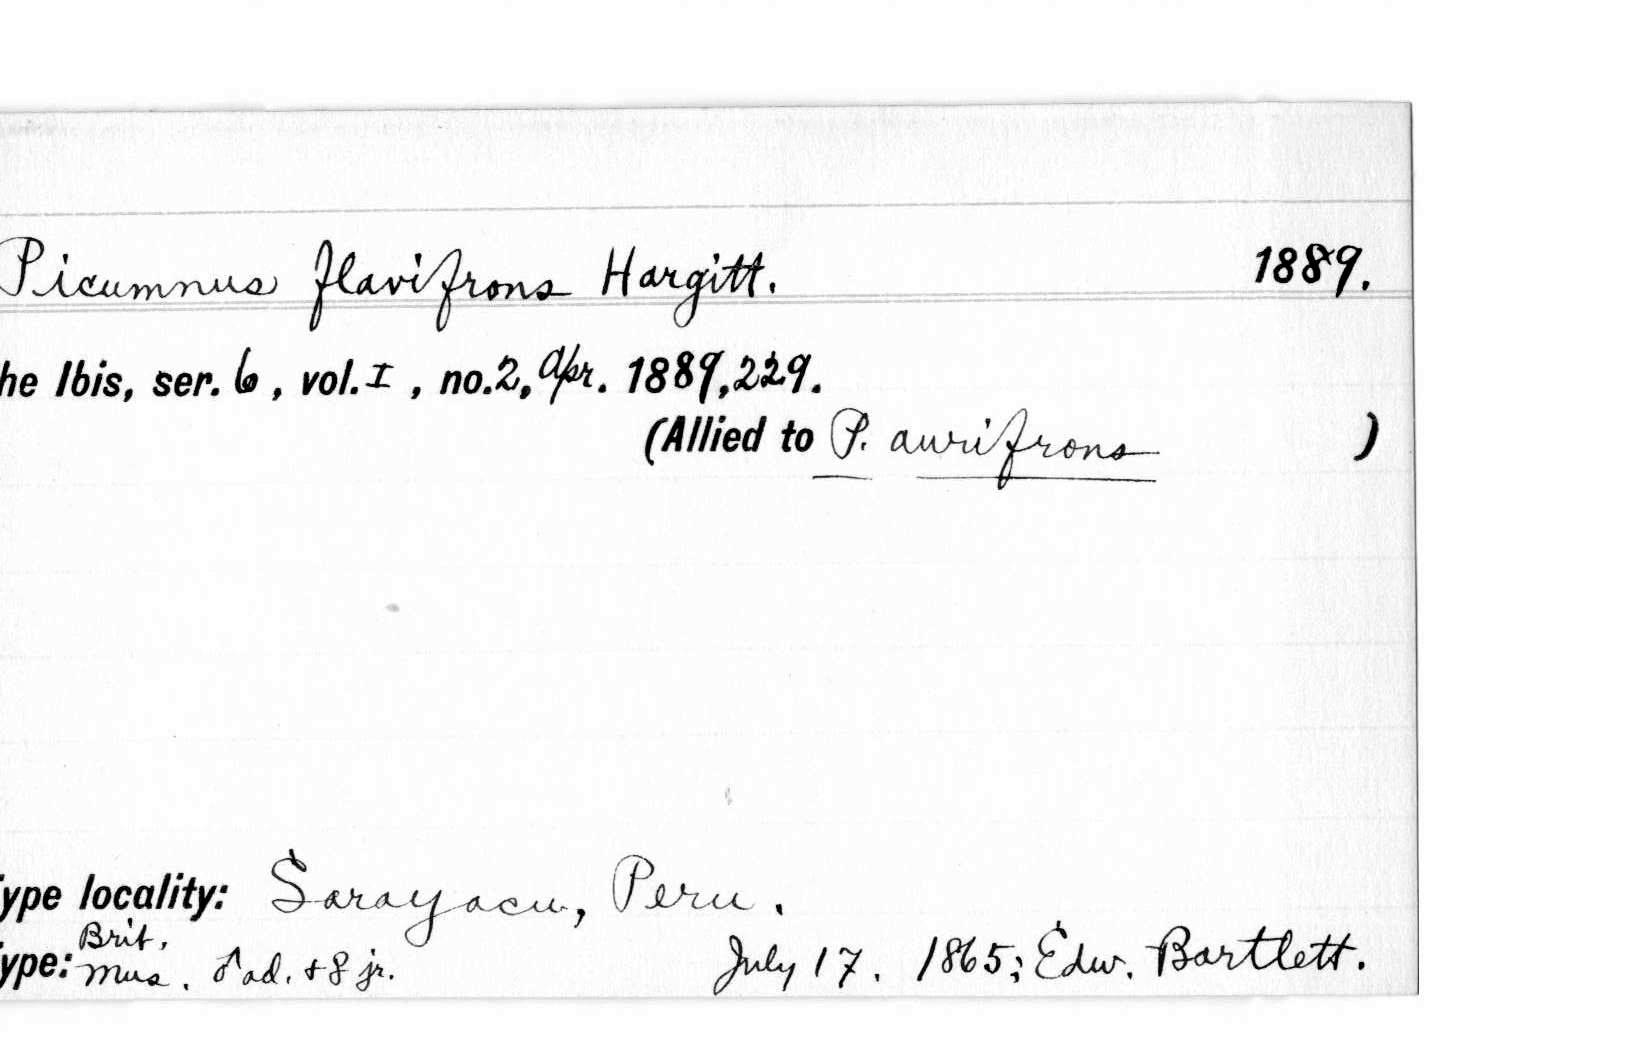 Picumnus flavifrons Hargitt. 1889.
he Ibis, ser. 6, vol. I, no. 2, Apr. 1889, 229.
(Allied to P. aurifrons )
ype locality: Sarayacu, Peru.
ype: Brit. Mus. ♂ ad. + jr. July 17. 1865; Edw. Bartlett.